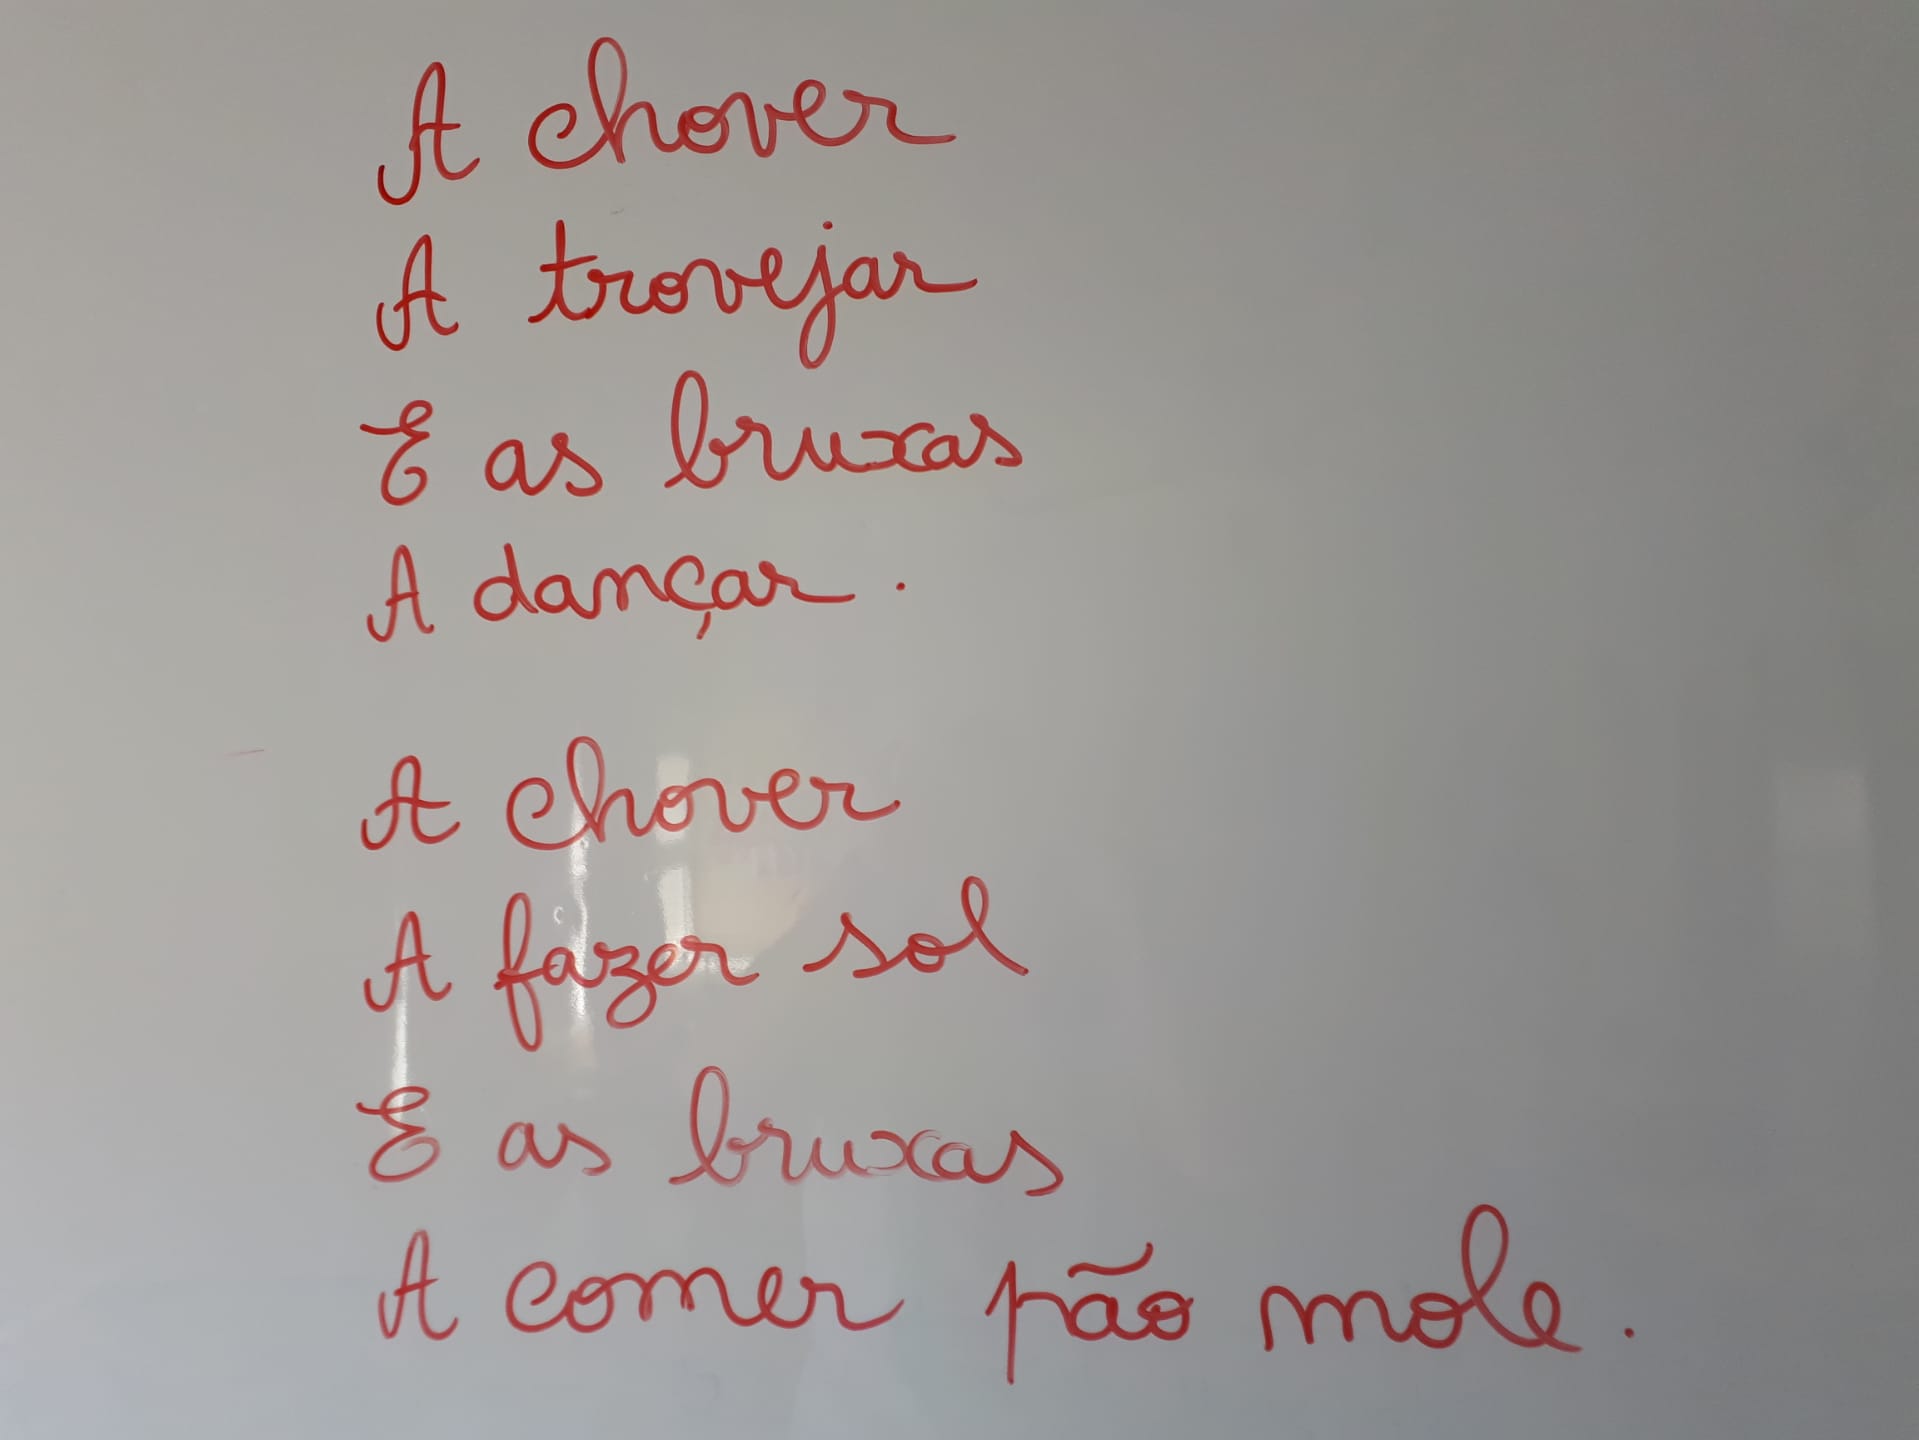 A chover
A trovejar
E as bruxas
A dançar.
A chover
A fazer sol
E as bruxas
A comer pão mole.